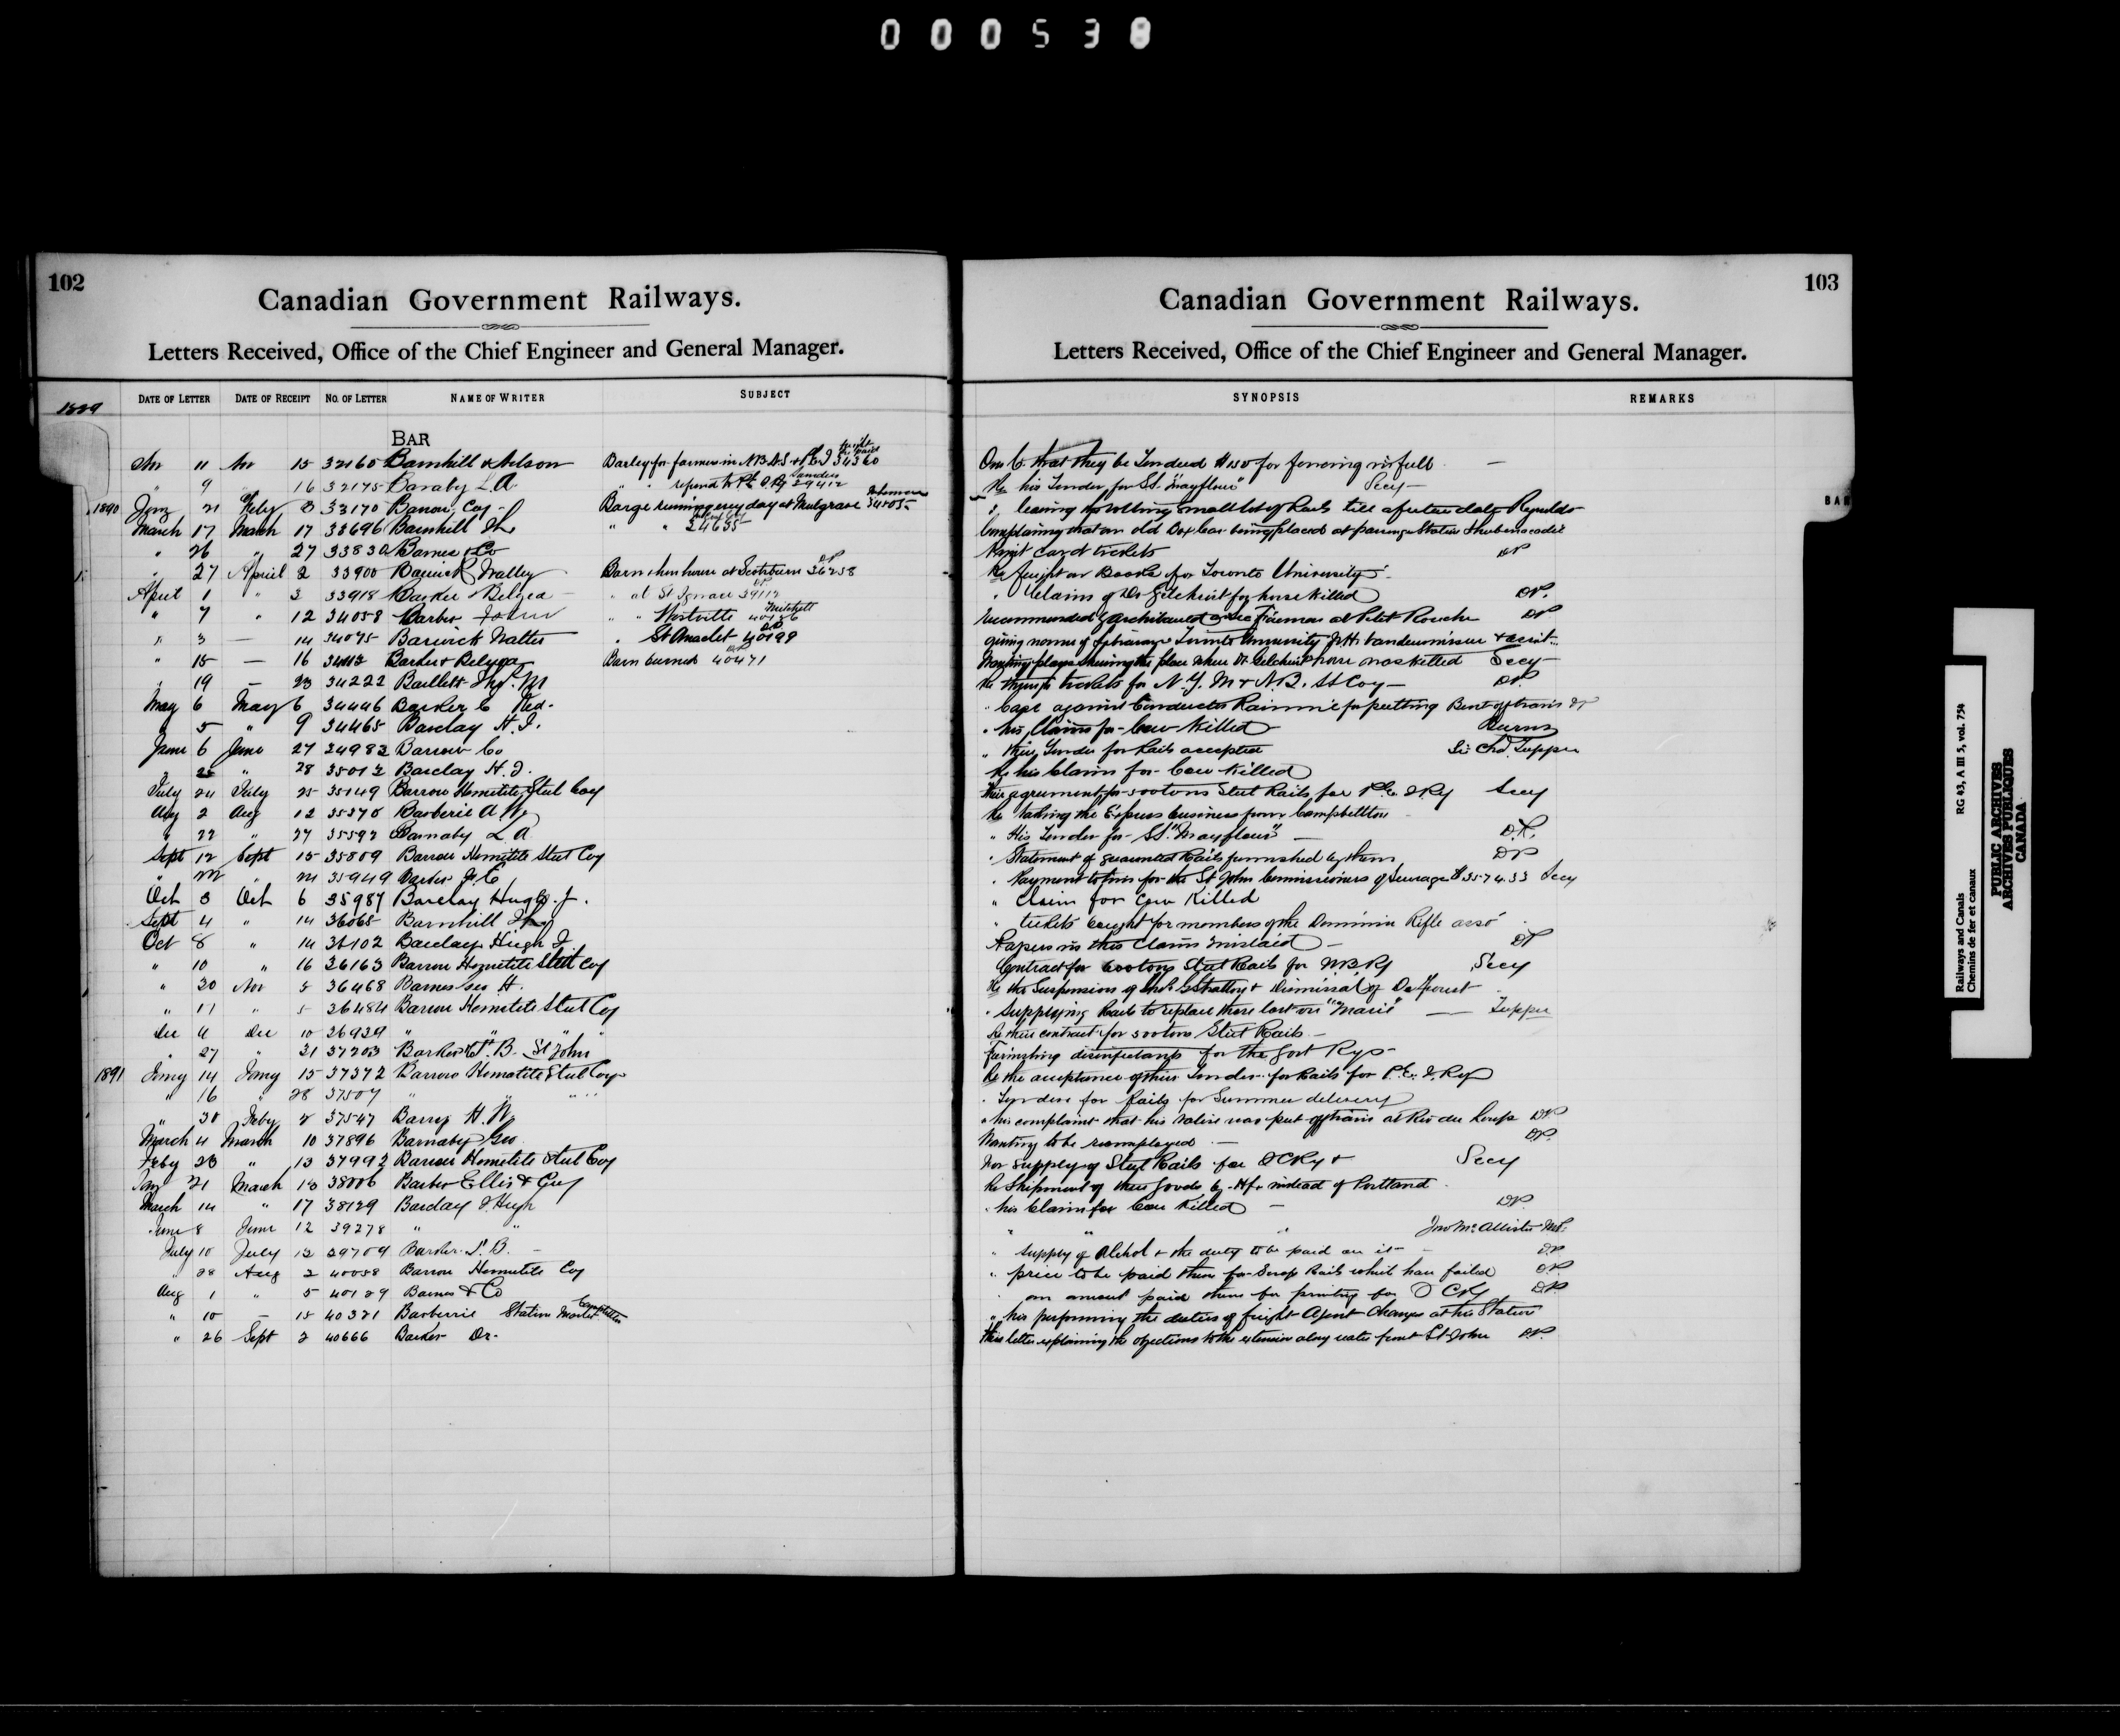 000538
102
Canadian Government Railways.
Letters Received, Office of the Chief Engineer and General Manager.
1889 DATE OF LETTER DATE OF RECEIPT NO. OF LETTER NAME OF WRITER SUBJECT
BAR
11 15 32160 Barnhill & Nelson Barley for farmers in N.B. N.S. & P.E.I 34360
" 9 16 32175 Barnaby L.A. " "
1890 Jany 21 Feby 8 33170 Barrow Coy Barge running every day at Mulgrave 34805
March 17 March 17 33696 Barnhill " " 34655
" 26 " 27 33830 Barnes & Co
" 27 April 2 33900 Barwick Walter Barn & hen house at Scotsburn 36258
April 1 " 3 33918 Barker & Belyea " at St Ignace 39112
" 7 " 12 34058 Barber John " " Westville 40186 Mitchell
" 3 — 14 34075 Barwick Walter " St Anaclet 40199
" 15 — 16 34112 Barker & Belyea Barn burned 40471
" 19 — 23 34222 Bartlett M
May 6 May 6 34446 Barker C Fred.
" 5 " 9 34465 Barclay H. J.
June 6 June 27 34982 Barrow Co
" 25 " 28 35012 Barclay H. J.
July 24 July 25 35149 Barrow Hematite Steel Coy
Aug 2 Aug 12 35370 Barberie A W
" 22 " 27 35592 Barnaby L A
Sept 12 Sept 15 35809 Barrow Hematite Steel Coy
" " 35949 Barker
Oct 3 Oct 6 35987 Barclay Hugh J.
Sept 4 " 14 36065 Barnhill
Oct 8 " 14 36102 Barclay Hugh J
" 10 " 16 36163 Barrow Hematite Steel Coy
" 30 Nov 5 36468 Barnes Geo H.
" 11 " 5 36484 Barrow Hematite Steel Coy
Dec 4 Dec 10 36939 " " "
" 27 " 31 37203 Barker T. B. St John
1891 Jany 14 Jany 15 37372 Barrow Hematite Steel Coy
" 16 28 37507 " " "
" 30 Feby 2 37547 Barry H. W.
March 4 March 10 37896 Barnaby Geo
Feby 28 " 13 37992 Barrow Hematite Steel Coy
Jany 21 March 18 38006 Barber Ellis & Coy
March 14 " 17 38129 Barclay J. Hugh
June 8 June 12 39278 " "
July 10 July 12 39709 Barker T. B. —
" 28 Aug 2 40058 Barrow Hematite Coy
Aug 1 " 5 40129 Barnes & Co
" 10 — 15 40321 Barberrie Station Master Campbellton
" 26 Sept 2 40666 Barker Dr.
103
Canadian Government Railways.
Letters Received, Office of the Chief Engineer and General Manager.
SYNOPSIS REMARKS
that they be tendered $150 for fencing in full —
Re his Tender for St. "Mayflower" Secy —
BAR
" leaving the rolling small lot of Rails till a future date Reynolds
Complaining that an old Box Car being placed at passing Station Shubenacadie
card tickets DP
Re freight on Books for Toronto University
" Claims of Dr Gilchrist for horse killed DP.
Recommended Archibauld as Fireman at Petit Rouche DP
giving names of Toronto University
Wanting plans showing the place where Dr. Gilchrist horse was killed Secy
Re through tickets for N.Y. M & N.B. SS Coy — DP.
" Case against Conductor Rainnie for putting Bent off train DP
" his Claim for Cow Killed Burns
" their Tender for Rails accepted Sir Chas Tupper
Re his Claim for Cow Killed
Their agreement for 500 tons Steel Rails for P.E.I Ry Secy
Re taking the Express business from Campbellton
" His Tender for SS. "Mayflower" — D.P.
" Statement of guaranteed Rails furnished by them DP
" Payment to him for the St John Commissioners of Sewerage $3574.33 Secy
" Claim for Cow Killed
" tickets bought for members of the Dominion Rifle asso
Papers in this Claim mislaid — DP
Contract for 6000 tons Steel Rails for Ry Secy
Re the Suspension of Stratton & Dismissal of
" Supplying Rails to replace those lost on "Marie" — Tupper
Re their contract for 500 tons Steel Rails —
Furnishing disinfectants for the Govt Rys —
Re the acceptance of their Tender for Rails for P.E.I. Ry
" Tenders for Rails for Summer delivery
" his complaint that his Valise was put off train at Riv du Loup DP
Wanting to be reemployed — DP.
For supply of Steel Rails for I C Ry & Secy
Re Shipment of their Goods by Hfx instead of Portland
" his Claim for Cow Killed — DP.
" " " Jno McAllister M.P.
" Supply of Alchol & the duty to be paid on it — DP
" price to be paid them for Scrap Rails which have failed DP.
" on amount paid them for printing for I C Ry DP
" his performing the duties of freight Agent Changes at the Station
His letter explaining the objections to the extension along water front St John DP.
Railways and Canals RG 43, A III 5, vol. 754
Chemins de fer et canaux
PUBLIC ARCHIVES
ARCHIVES PUBLIQUES
CANADA